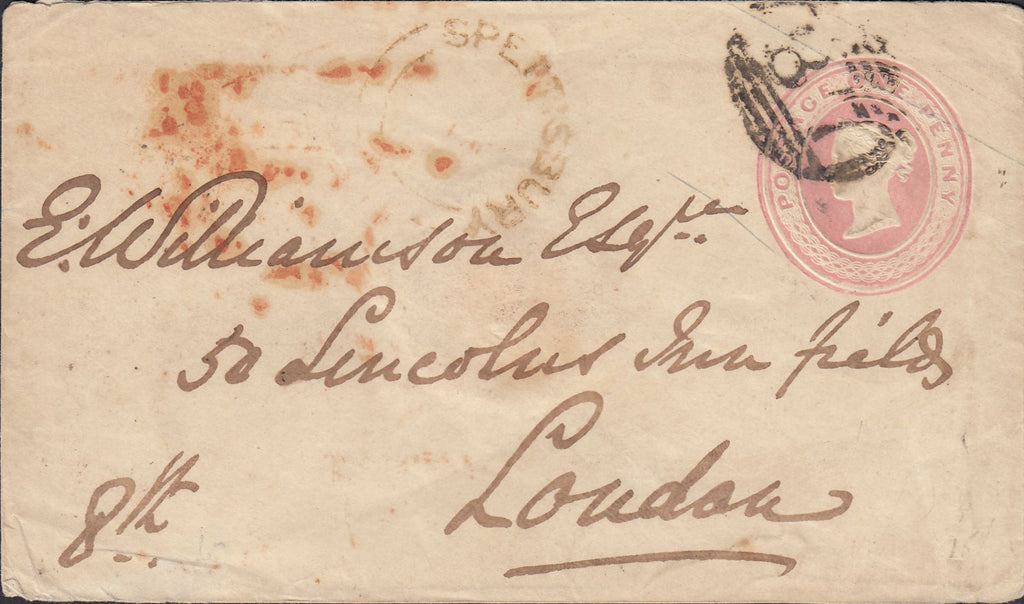 SPENNSBURY
POSTAGE ONE PENNY
E. Williamson Esqre
50 Lincolns Inn fields
London
8th